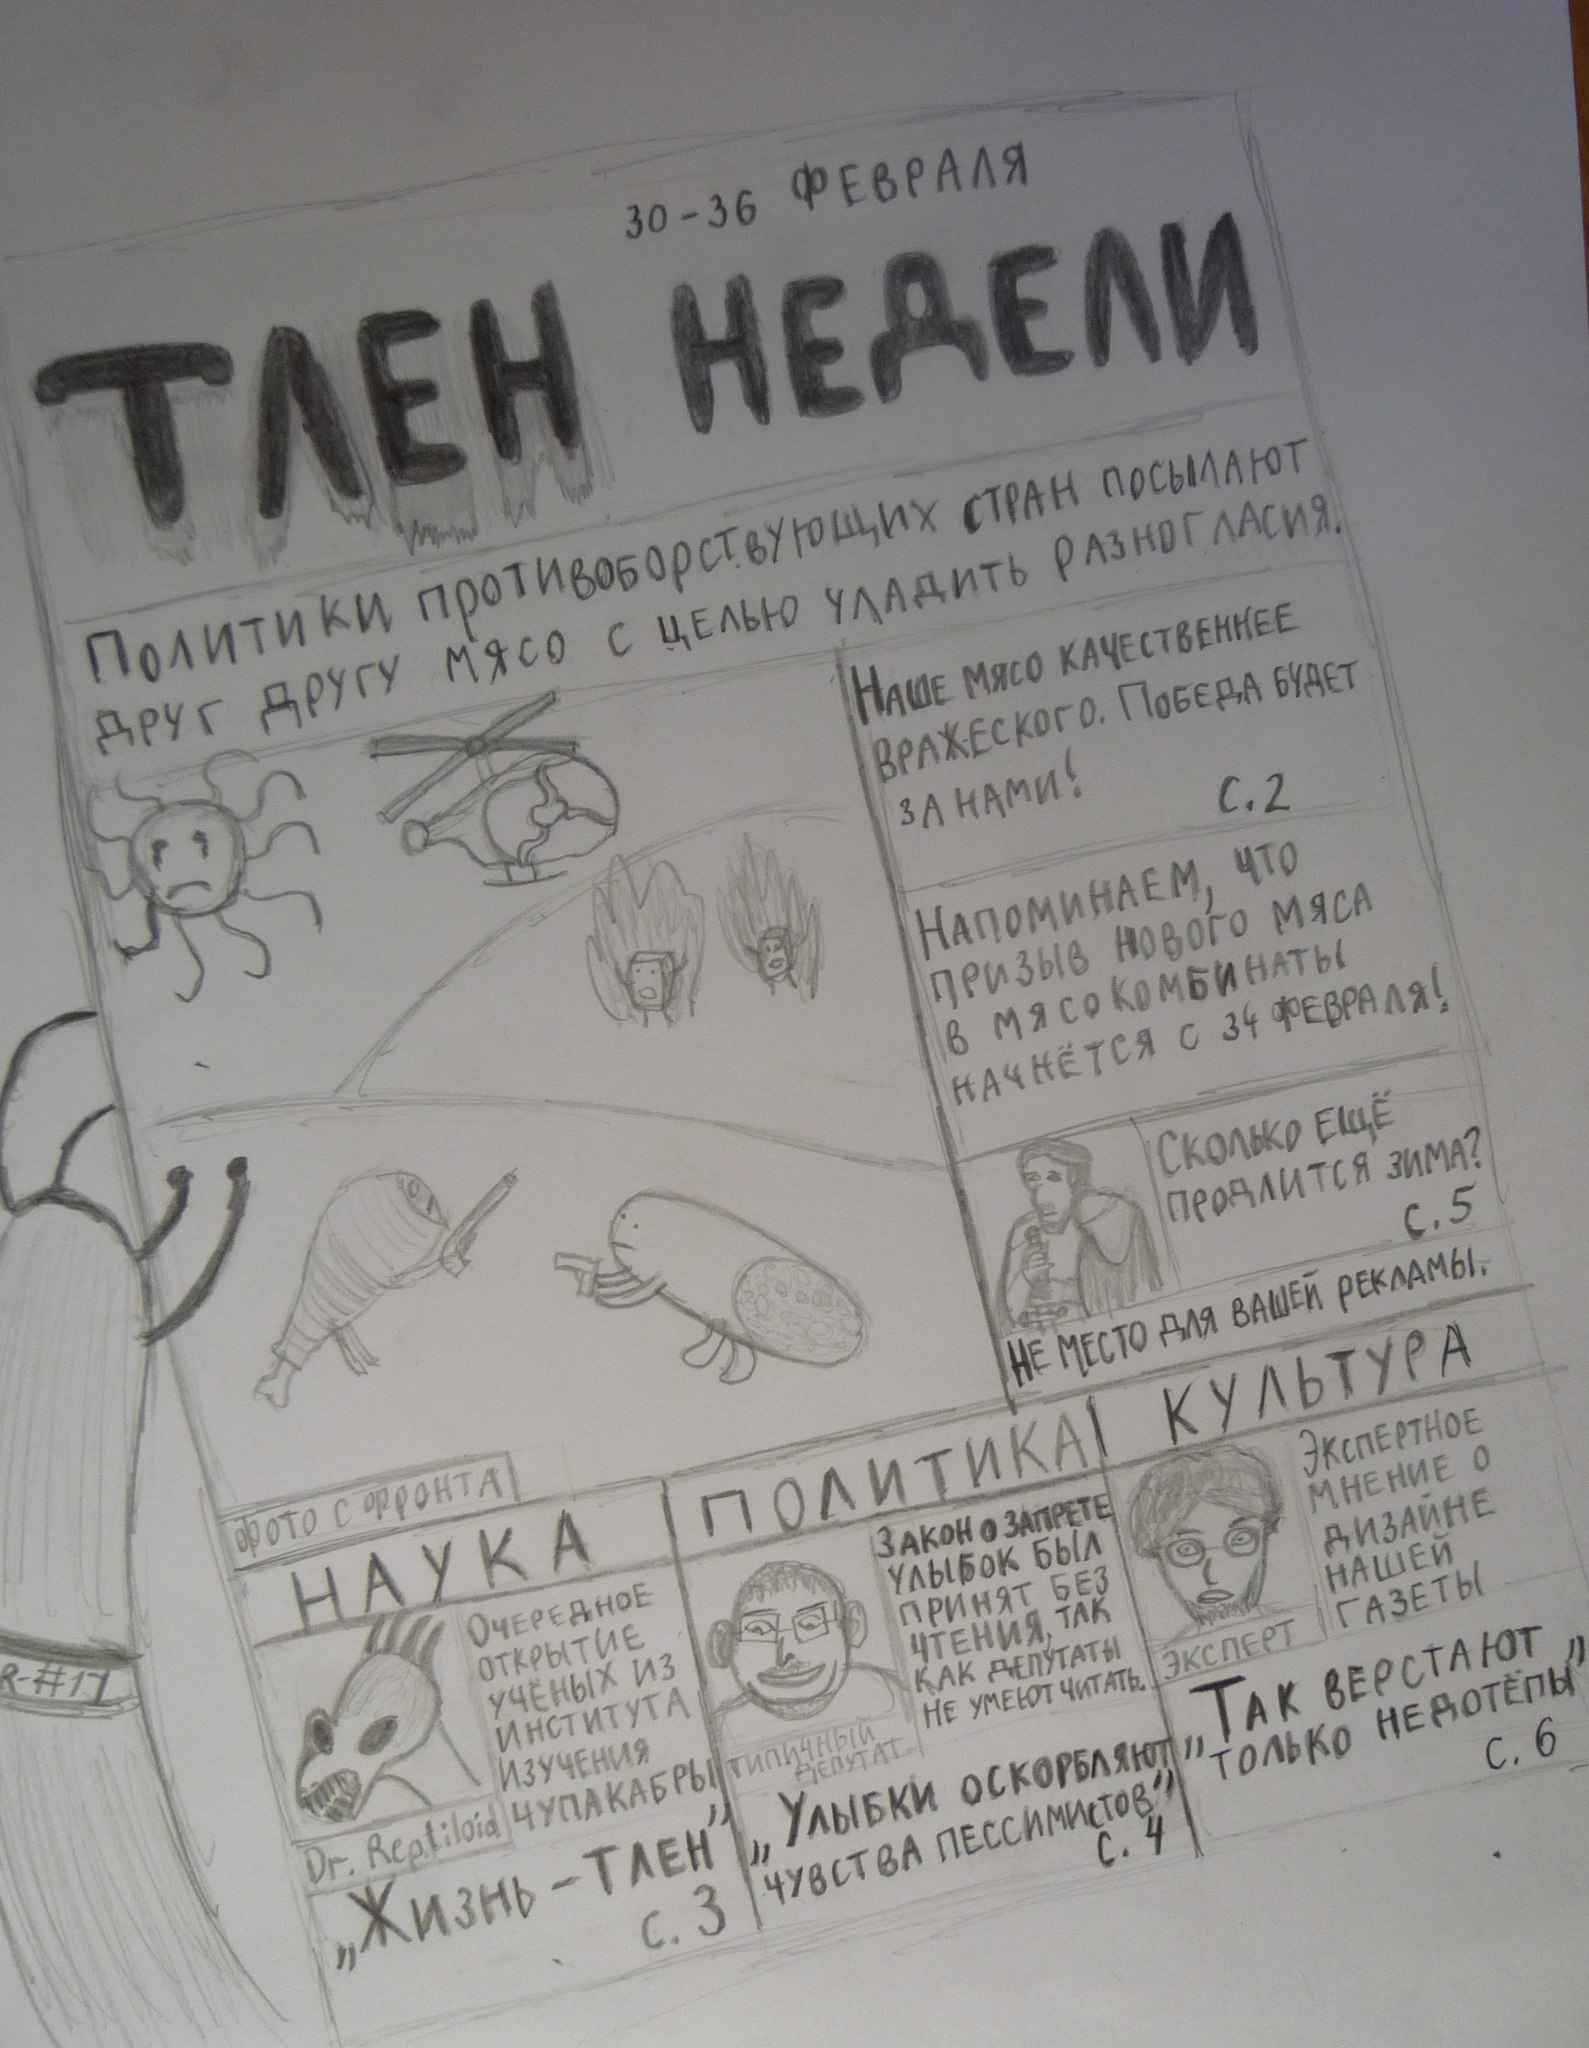 30-36 ФЕВРАЛЯ
ТЛЕН НЕДЕЛИ
ПОЛИТИКИ ПРОТИВОБОРСТВУЮЩИХ СТРАН ПОСЫЛАЮТ
ДРУГ ДРУГУ МЯСО С ЦЕЛЬЮ УЛАДИТЬ РАЗНОГЛАСИЯ.
НАШЕ МЯСО КАЧЕСТВЕННЕЕ
ВРАЖЕСКОГО. ПОБЕДА БУДЕТ
ЗА НАМИ!
С.2
НАПОМИНАЕМ, ЧТО
ПРИЗЫВ НОВОГО МЯСА
В МЯСОКОМБИНАТЫ
НАЧНЁТСЯ С 34 ФЕВРАЛЯ!
СКОЛЬКО ЕЩЁ
ПРОДЛИТСЯ ЗИМА?
С.5
НЕ МЕСТО ДЛЯ ВАШЕЙ РЕКЛАМЫ.
ФОТО С ФРОНТА
НАУКА
ОЧЕРЕДНОЕ
ОТКРЫТИЕ
УЧЁНЫХ ИЗ
ИНСТИТУТА
ИЗУЧЕНИЯ
ЧУПАКАБРЫ
Dr. Reptiloid
„ЖИЗНЬ – ТЛЕН”
С.3
ПОЛИТИКА
ЗАКОН О ЗАПРЕТЕ
УЛЫБОК БЫЛ
ПРИНЯТ БЕЗ
ЧТЕНИЯ, ТАК
КАК ДЕПУТАТЫ
НЕ УМЕЮТ ЧИТАТЬ.
ТИПИЧНЫЙ
ДЕПУТАТ
„УЛЫБКИ ОСКОРБЛЯЮТ
ЧУВСТВА ПЕССИМИСТОВ”
С.4
КУЛЬТУРА
ЭКСПЕРТНОЕ
МНЕНИЕ О
ДИЗАЙНЕ
НАШЕЙ
ГАЗЕТЫ
ЭКСПЕРТ
„ТАК ВЕРСТАЮТ
ТОЛЬКО НЕДОТЁПЫ”
С.6
R-#17